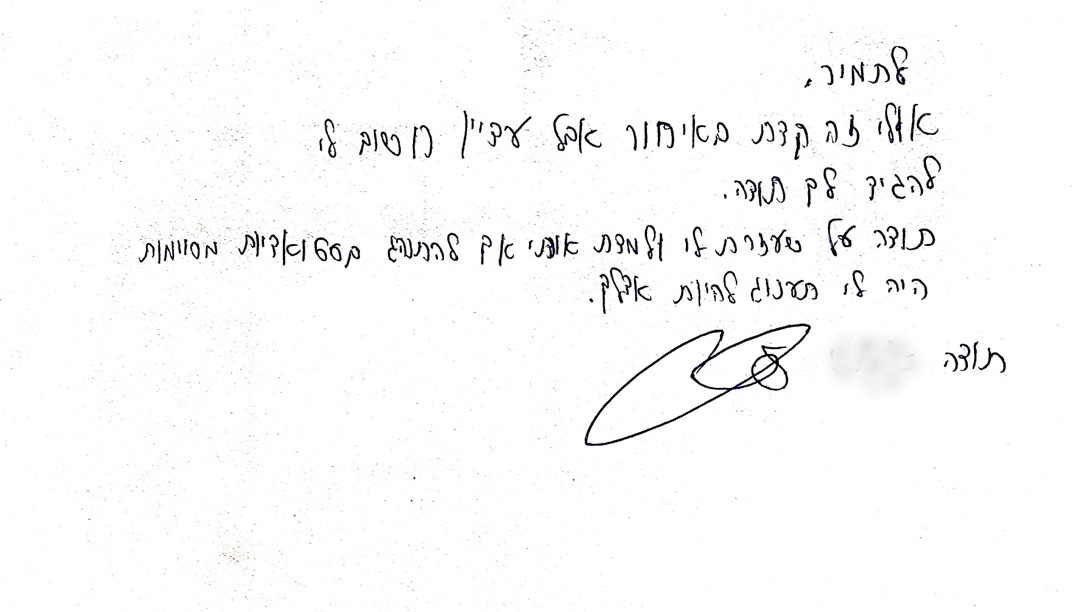 לתמיר,
אולי זה קצת באיחור אבל עדיין חשוב לי
להגיד לך תודה.
תודה על שעזרת לי ולמדת אותי איך להתנהג בסטואציות מסוימות
היה לי תענוג להיות אצלך.
תודה